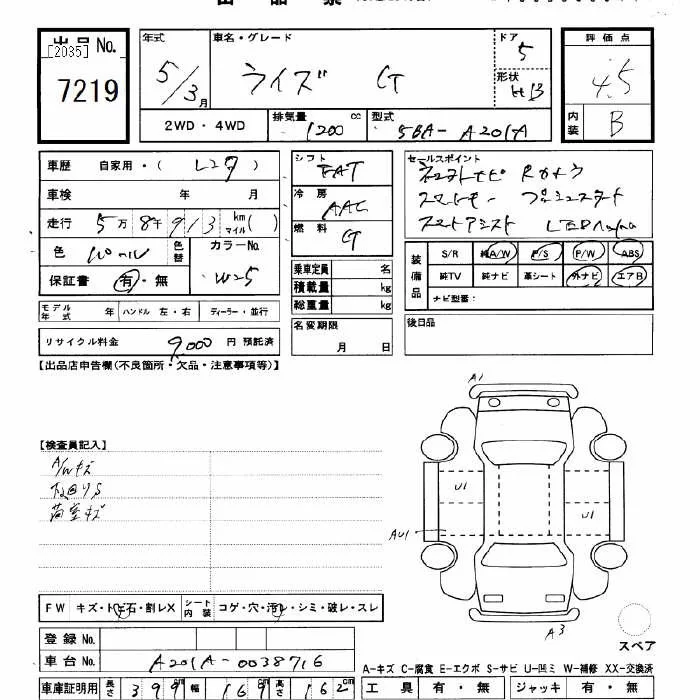 出品No.
[2035]
7219
年式
5/3月
車名・グレード
ライズ G
ドア
5
形状
HB
評価点
4.5
内装
B
2WD・4WD
排気量 cc
1200
型式
5BA- A201A
車歴 自家用・( レンタ )
車検 年 月
走行 5万8千913 km マイル( )
色
色替
カラーNo.
W25
保証書 有・無
シフト
FAT
冷房
AAC
燃料
G
乗車定員 名
積載量 kg
総重量 kg
名変期限
月 日
セールスポイント
スマートキー プッシュスタート
スマートアシスト
装備品
S/R 純A/W P/S P/W ABS
純TV 純ナビ 革シート 外ナビ エアB
ナビ型番:
後日品
モデル年式 年 ハンドル 左・右 ディーラー・並行
リサイクル料金 9,000 円 預託済
【出品店申告欄(不良箇所・欠品・注意事項等)】
【検査員記入】
A/Wキズ
下回りS
荷室キズ
A1
U1
U1
AU1
A3
スペア
FW キズ・トビ石・割レX シート内装 コゲ・穴・汚レ・シミ・破レ・スレ
登録No.
車台No. A201A-0038716
車庫証明用 長さ 399 cm 幅 169 cm 高さ 162 cm
A-キズ C-腐食 E-エクボ S-サビ U-凹ミ W-補修 XX-交換済
工具 有・無 ジャッキ 有・無